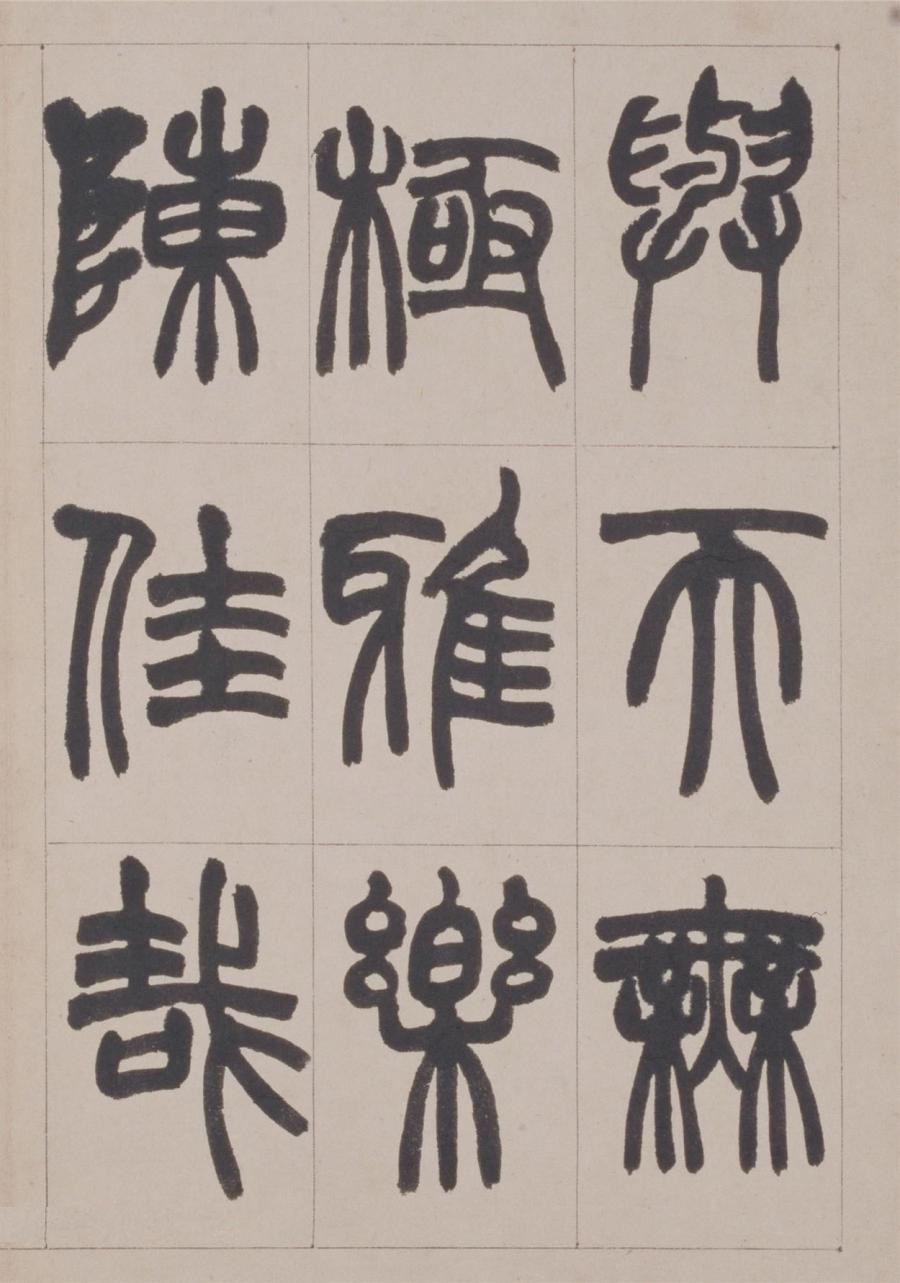 與天無
極雅樂
陳佳哉